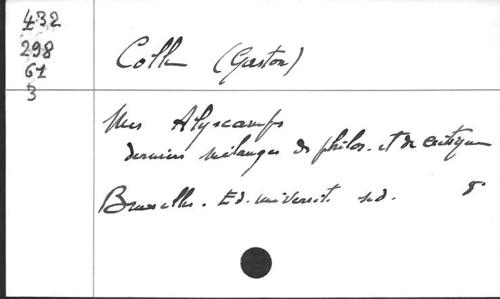 432
298
61
3
Colle (Gaston)
Mes Alyscamps
derniers mélanges de philos. et de critique
Bruxelles. Ed. universit. s.d. 8°